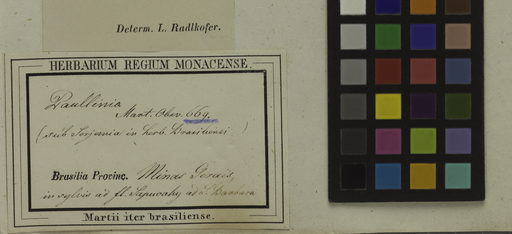 Determ. L. Radlkofer.
HERBARIUM REGIUM MONACENSE.
Paullinia
Mart. Obs. 669.
(sub Serjania in herb. Brasiliensi)
Brasilia Provinç. Minas Geraës,
in sylvis ad fl.
Martii iter brasiliense.